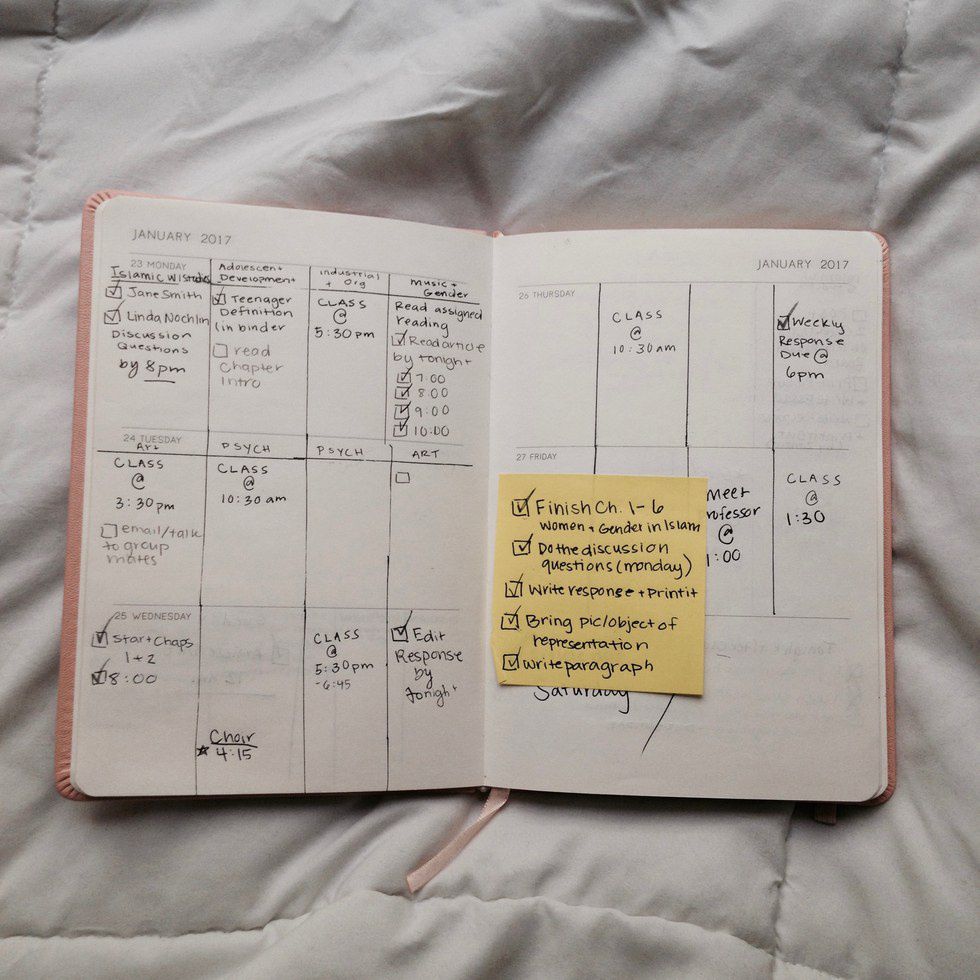 JANUARY 2017
23 MONDAY
Islamic
Jane Smith
Linda Nochlin
Discussion
Questions
by 8pm
Adolescent
Development
Teenager
Definition
(in binder
read
Chapter
Intro
Industrial
+ Org
CLASS
@
5:30pm
Music +
Gender
Read assigned
reading
Read article
by tonight
7:00
8:00
9:00
10:00
24 TUESDAY
Art
CLASS
@
3:30pm
email/talk
to group
mates
PSYCH
CLASS
@
10:30am
PSYCH
ART
25 WEDNESDAY
Start Chaps
1+2
8:00
Choir
4:15
CLASS
@
5:30pm
-6:45
Edit
Response
by
tonight
JANUARY 2017
26 THURSDAY
CLASS
@
10:30am
Weekly
Response
Due @
6pm
27 FRIDAY
Meet
@
CLASS
@
1:30
Finish Ch. 1-6
Women + Gender in Islam
Do the discussion
questions (monday)
Write response + Print it
Bring pic/object of
representation
write paragraph
Saturday